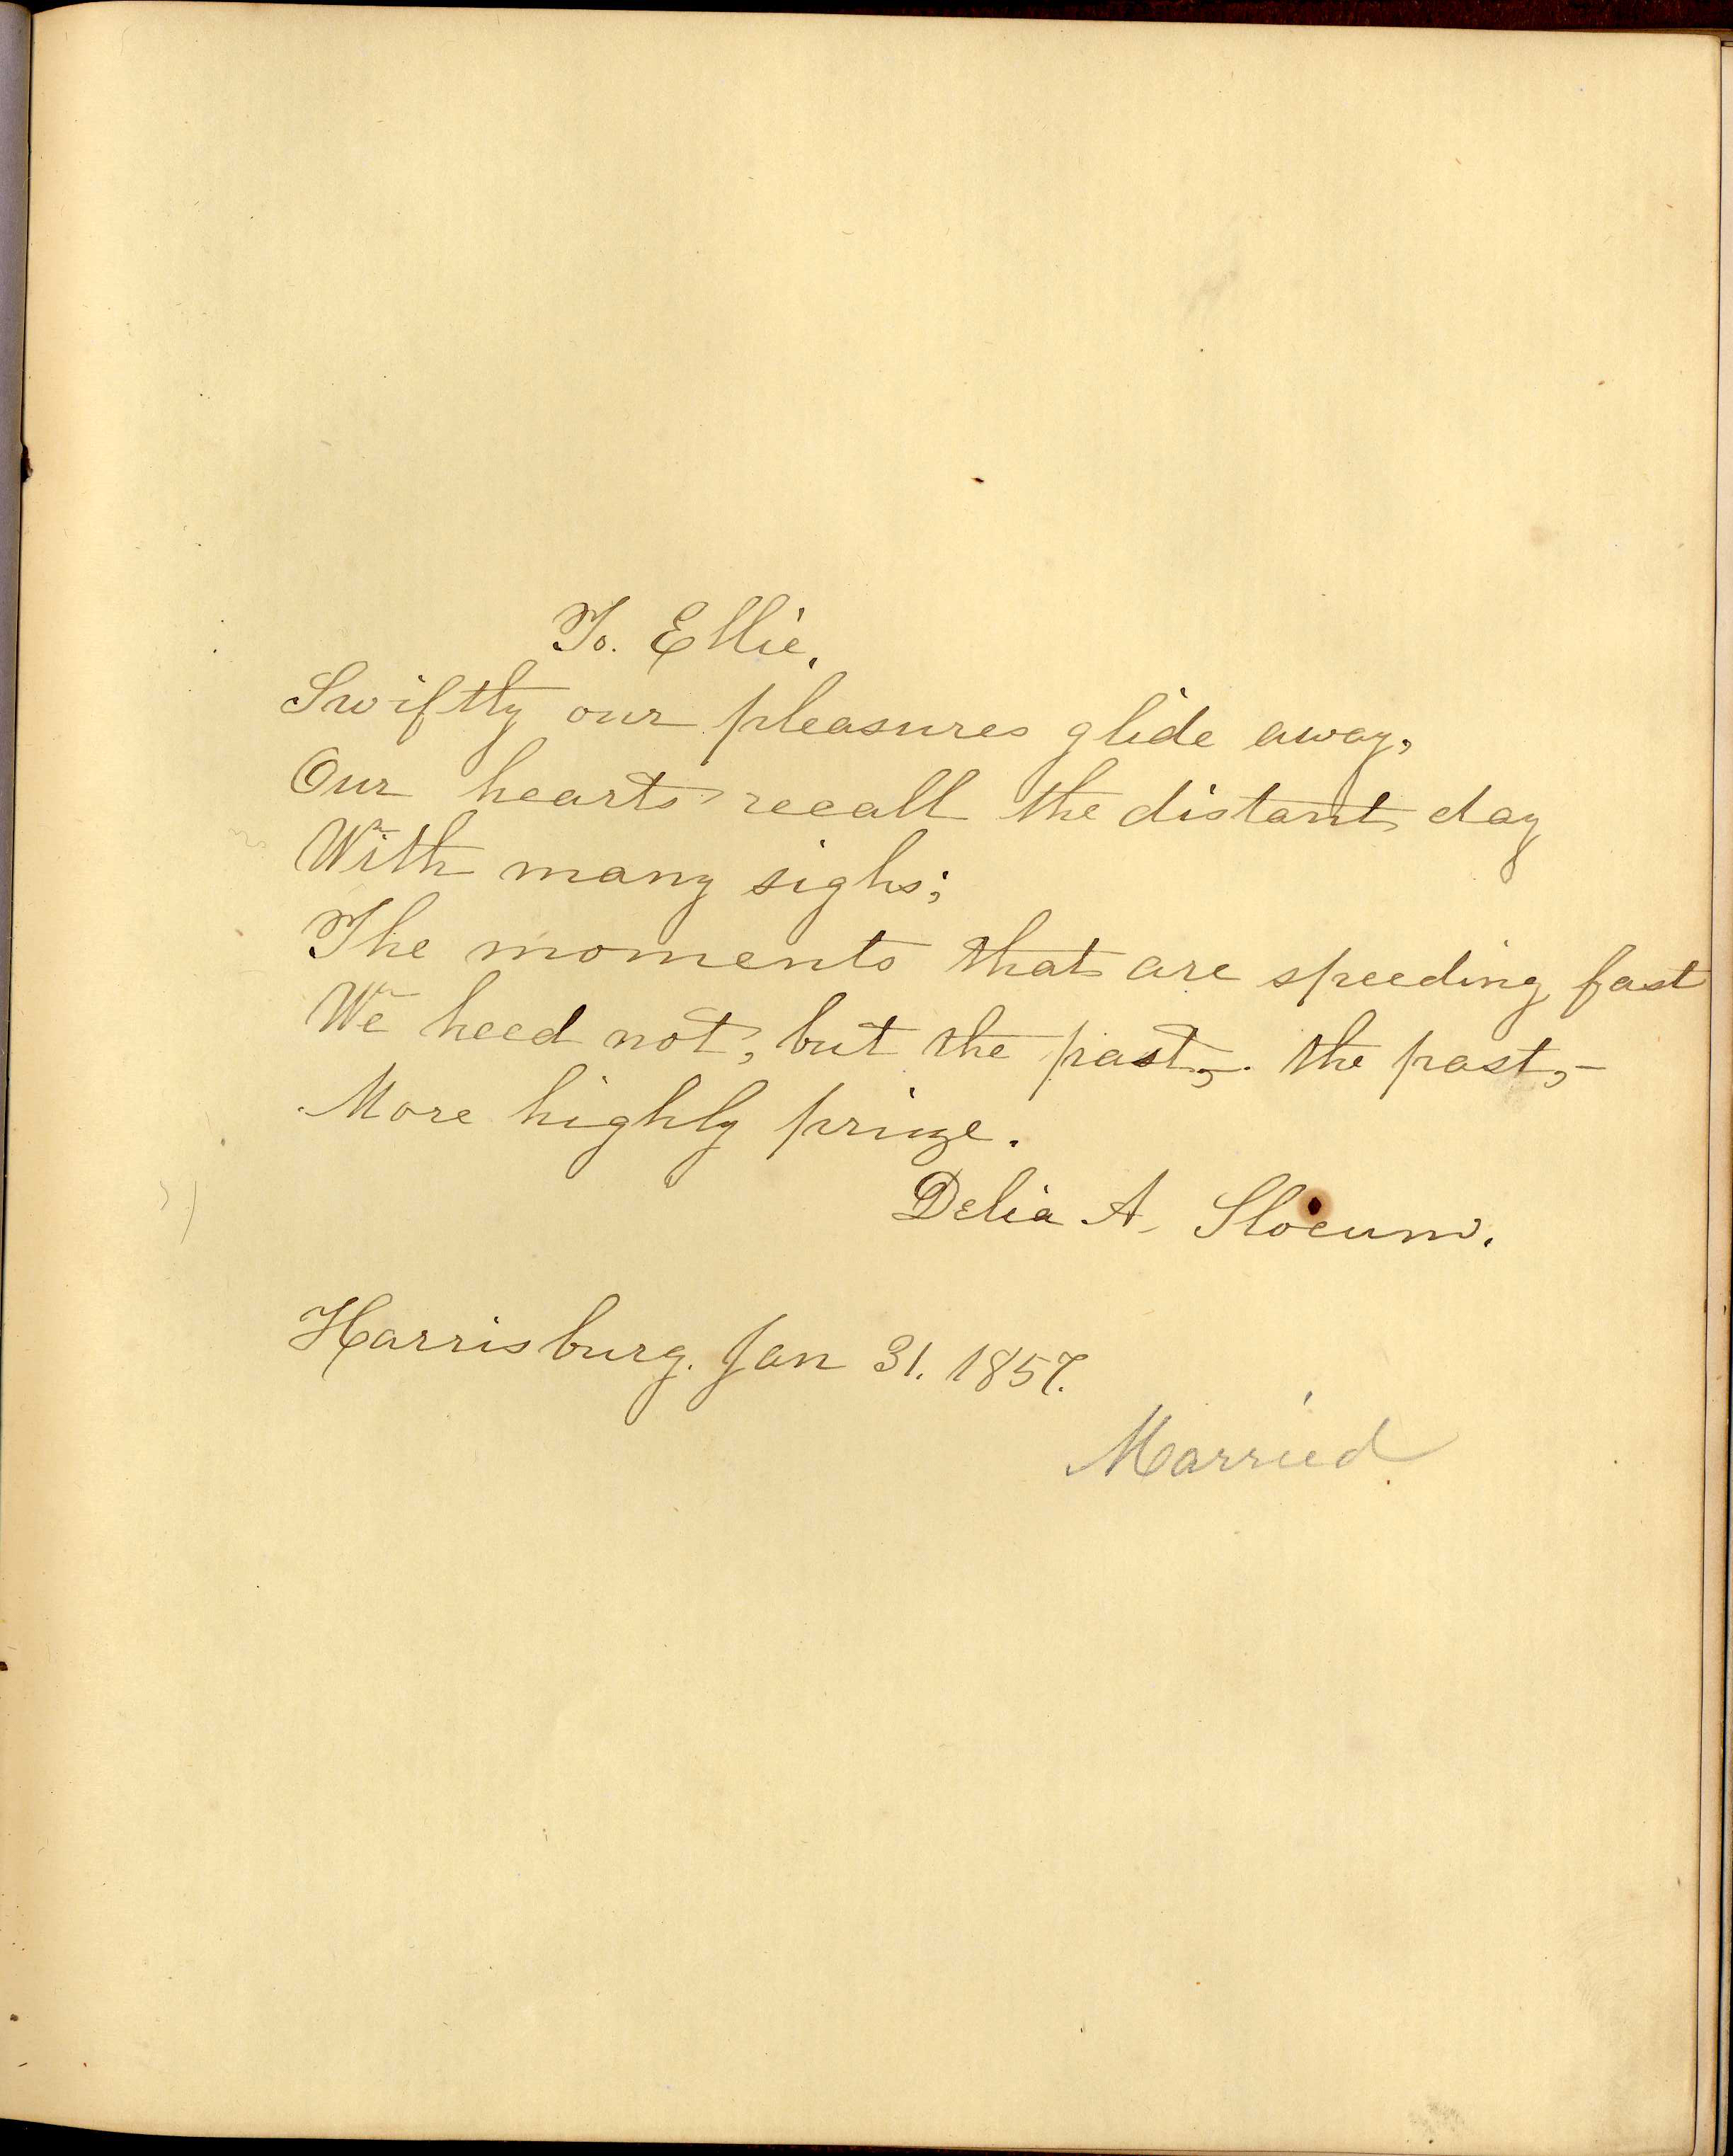 To. Ellie.
Swiftly our pleasures glide away,
Our hearts recall the distant day
With many sighs;
The moments that are speeding fast
We heed not, but the past,- the past,-
More highly prize.
Delia A. Slocum.
Harrisburg. Jan 31. 1857.
Married